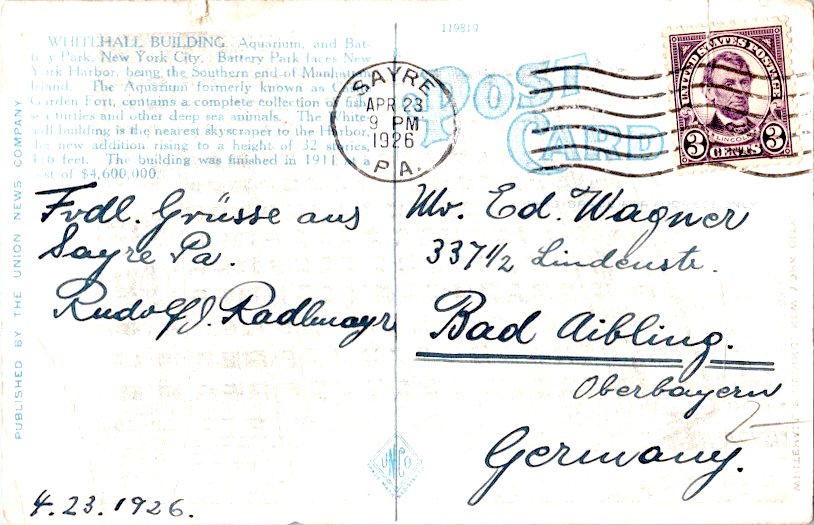 119819
WHITEHALL BUILDING. Aquarium, and Bat-
tery Park, New York City. Battery Park faces New
York Harbor, being the Southern end of Manhattan
Island. The Aquarium formerly known as
Garden Fort, contains a complete collection of fish,
sea turtles and other deep sea animals. The White-
hall building is the nearest skyscraper to the Harbor,
the new addition rising to a height of 32 stories,
feet. The building was finished in 1911 at a
cost of $4,600,000.
POST
CARD
SAYRE
APR 23
9 PM
1926
PA.
UNITED STATES POSTAGE
LINCOLN
3 CENTS 3
Frdl. Grüsse aus
Sayre Pa.
Rudolf J. Radlmayr
4.23.1926.
Mr. Ed. Wagner
337 1/2 Lindenstr.
Bad Aibling.
Oberbayern
Germany.
PUBLISHED BY THE UNION NEWS COMPANY